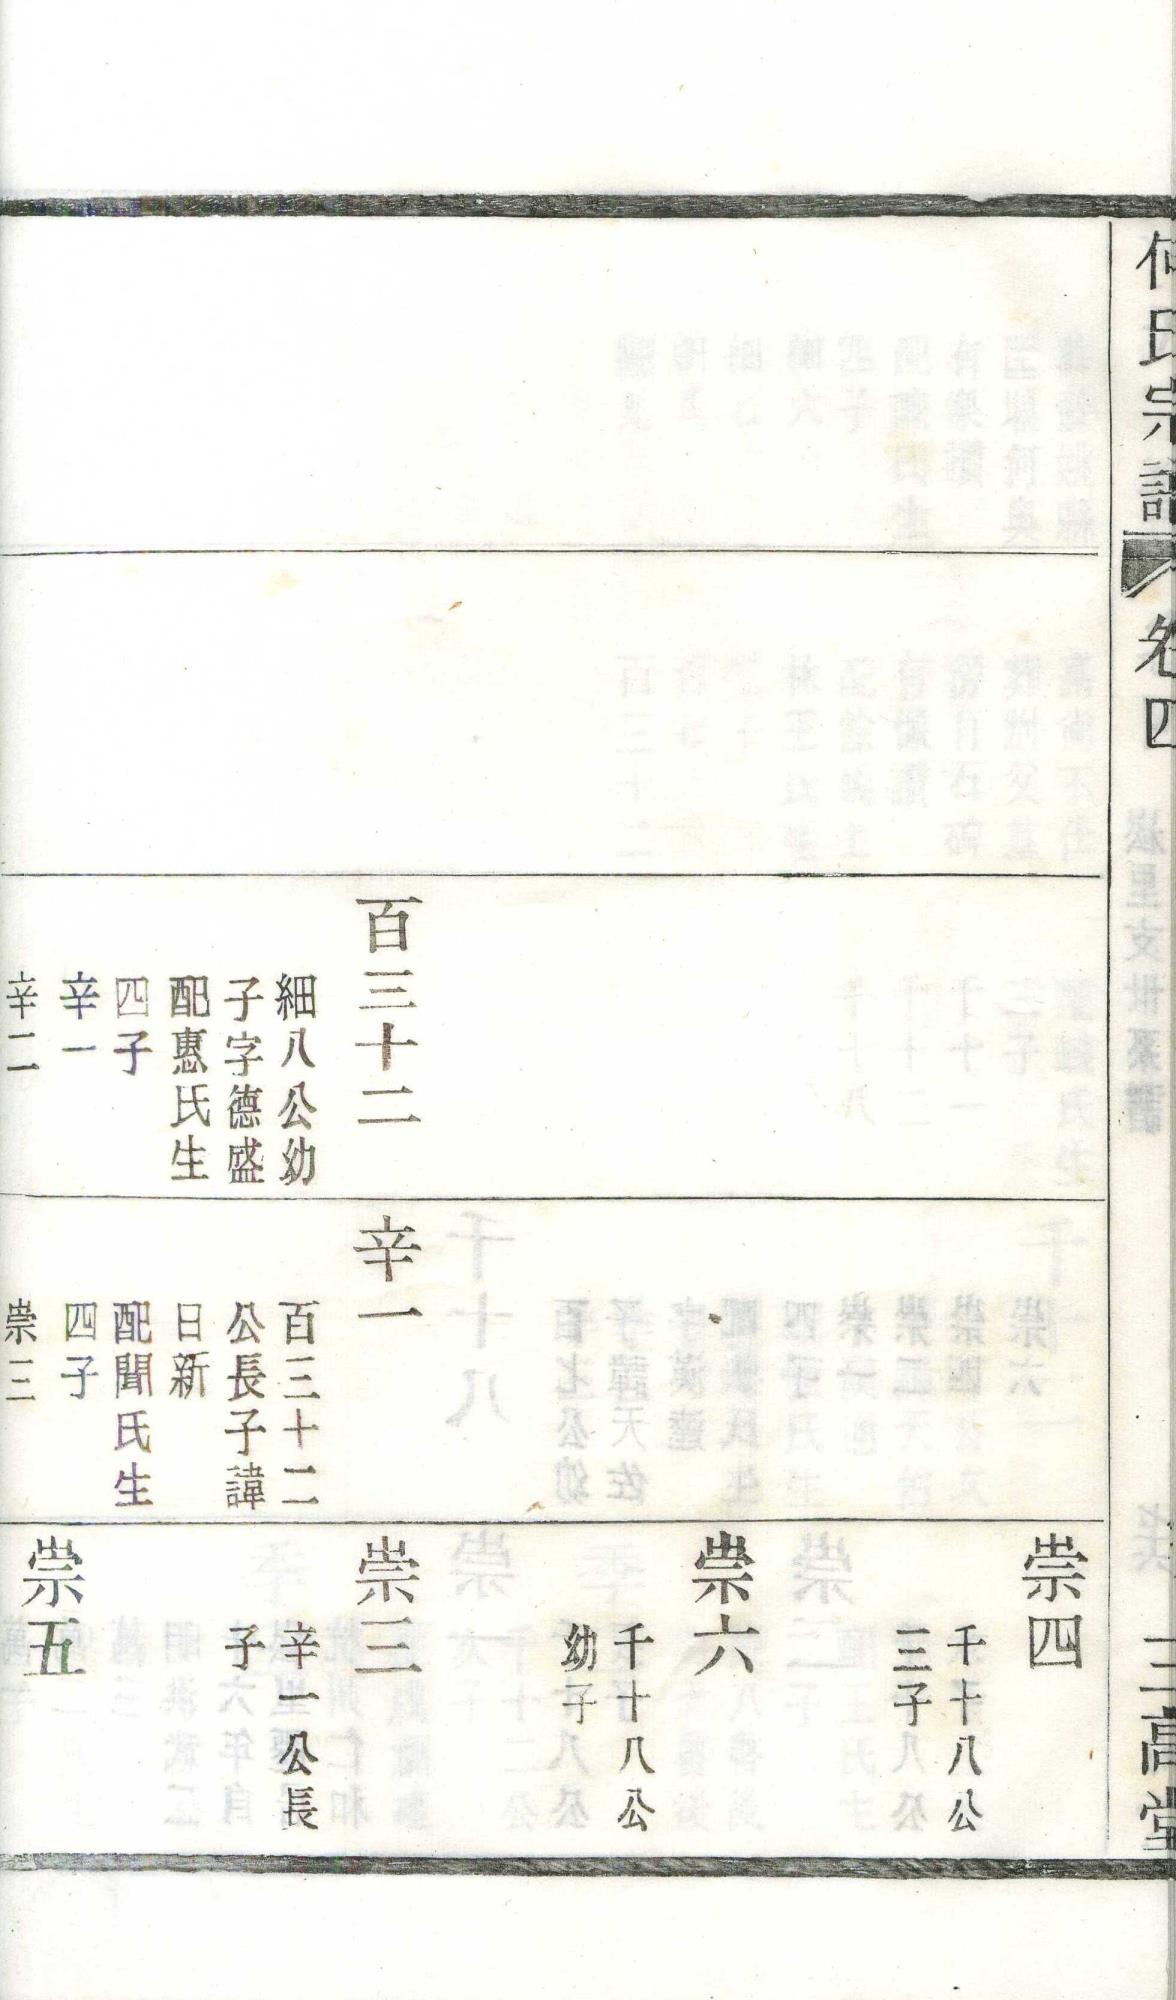 何氏宗譜
卷四
三高堂
百三十二
細八公幼
子字德盛
配惠氏生
四子
辛一
辛二
辛一
百三十二
公長子諱
日新
配聞氏生
四子
崇三
崇四
千十八公
三子
崇六
千十八公
幼子
崇三
辛一公長
子
崇五